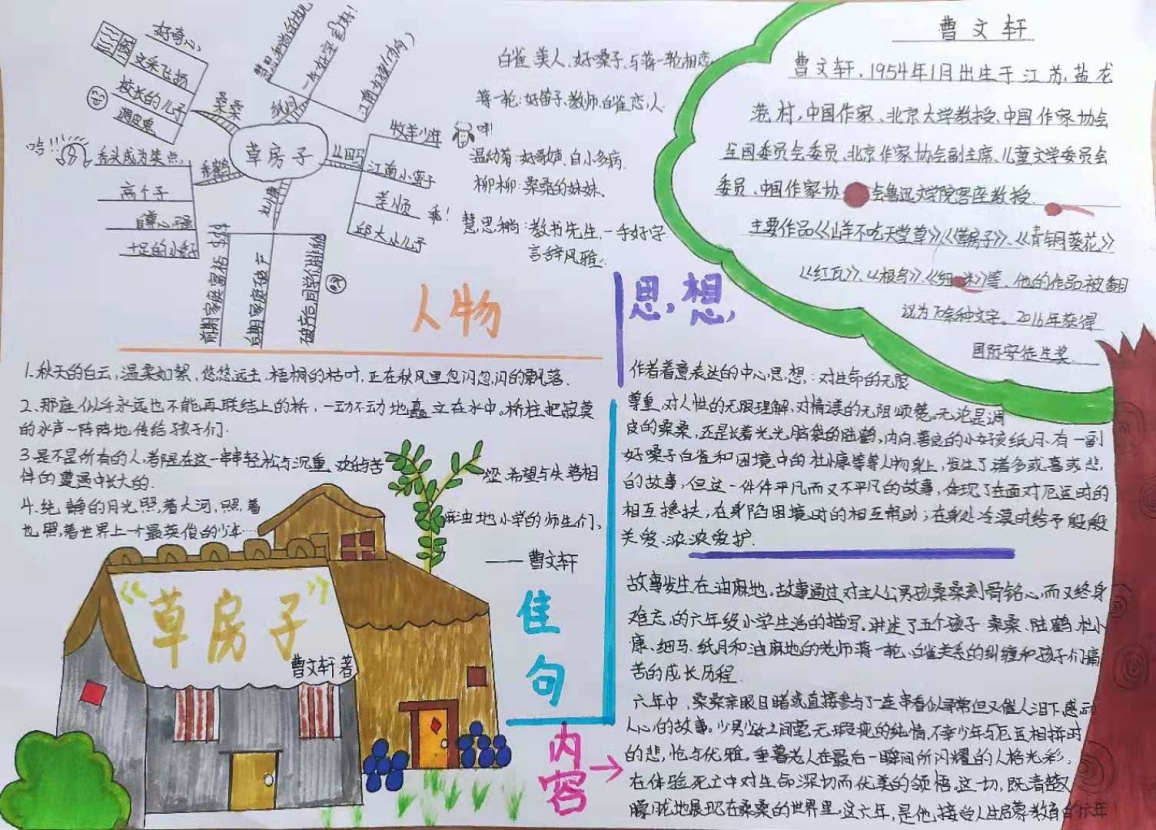 好奇心
文采飞扬
校长的儿子
调皮鬼
桑桑
纸月
草房子
陆鹤
秃头成为笑点
高个子
自尊心强
十足的小戏子
杜小康
前期家庭富裕
后期家庭破产
细马
牧羊少年
江南小蛮子
孝顺 乖!
邱大小儿子
白雀:美人、好嗓子、与蒋一轮相恋
蒋一轮:好笛子、教师、白雀恋人
温幼菊:好歌声、自小多病.
柳柳:桑桑的妹妹、
慧思和尚:教书先生、一手好字
言辞风雅.
人物
曹文轩
曹文轩,1954年1月出生于江苏,盐龙
港村,中国作家、北京大学教授、中国作家协会
全国委员会委员、北京作家协会副主席、儿童文学委员会
委员、中国作家协会鲁迅文学院客座教授.
主要作品《山羊不吃天堂草》《草房子》、《青铜葵花》
《红瓦》、《根鸟》《细米》等、他的作品被翻
译为 种文字。2016年获得
国际安徒生奖
1.秋天的白云,温柔如絮,悠悠远去,梧桐的枯叶,正在秋风里忽闪忽闪的飘落.
2.那座似乎永远也不能再联结上的桥,一动不动地矗立在水中.桥柱把寂寞
的水声一阵阵地传给孩子们.
3.是不是所有的人,都是在这一串串轻松与沉重、欢愉苦 涩、希望与失落相
伴的 中长大的.
4.纯静的月光照着大河,照着 麻地小学的师生们、
也照着世界上一个最英俊的少年…
——曹文轩
佳句
“草房子”
曹文轩著
思想
作者着意表达的中心思想:对生命的无限
尊重,对人性的无限理解,对情谊的无限颂赞.无论是调
皮的桑桑,还是长着光光脑袋的陆鹤,内向、善良的小女孩纸月,有一副
好嗓子白雀和困境中的杜小康等等人物身上,发生了诸多或喜或悲
的故事,但这一件件平凡而又不平凡的故事,体现了在面对厄运时的
相互搀扶,在身陷困境时的相互帮助;在身处冷漠时给予殷殷
关爱、浓浓爱护.
内容→
故事发生在油麻地,故事通过对主人公男孩桑桑刻骨铭心,而又终身
难忘,的六年级小学生活的描写,讲述了五个孩子 桑桑、陆鹤、杜小
康、细马、纸月和油麻地的老师蒋一轮、白雀关系的纠缠和孩子们痛
苦的成长历程.
六年中,桑桑亲眼目睹或直接参与了一连串看似寻常但又催人泪下、感动
人心的故事。少男少女之间毫无瑕疵的纯情,不幸少年与厄运相拼时
的悲怆与优雅.垂暮老人在最后一瞬间所闪耀的人格光彩,
在体验死亡中对生命深切而优美的领悟,这一切,既清楚又
朦胧地展现在桑桑的世界里.这六年,是他接受人生启蒙教育的六年